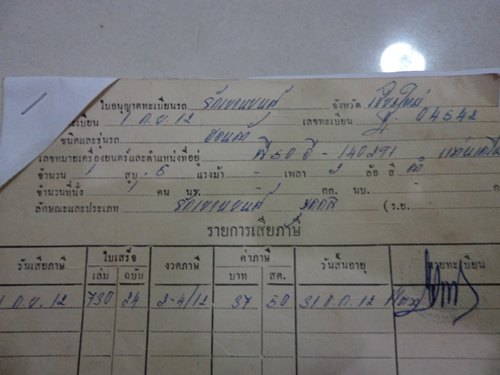 ใบอนุญาตทะเบียนรถ รถจักรยานยนต์ จังหวัด เชียงใหม่
ทะเบียน 1 ก.ย. 12 เลขทะเบียน 04542
ชนิดและรุ่นรถ ฮอนด้า
เลขหมายเครื่องยนต์และตำแหน่งที่อยู่ 50 - 140291
จำนวน 1 สูบ 5 แรงม้า - เพลา 2 ล้อ สี ดำ
จำนวนที่นั่ง 1 คน นร. - กก. นบ. -
ลักษณะและประเภท (ร.ย.
รายการเสียภาษี
วันเสียภาษี ใบเสร็จ งวดภาษี ค่าภาษี วันสิ้นอายุ นายทะเบียน
เล่ม ฉบับ บาท สต.
1 ก.ย. 12 730 24 2-4/12 37 50 31 ธ.ค. 12